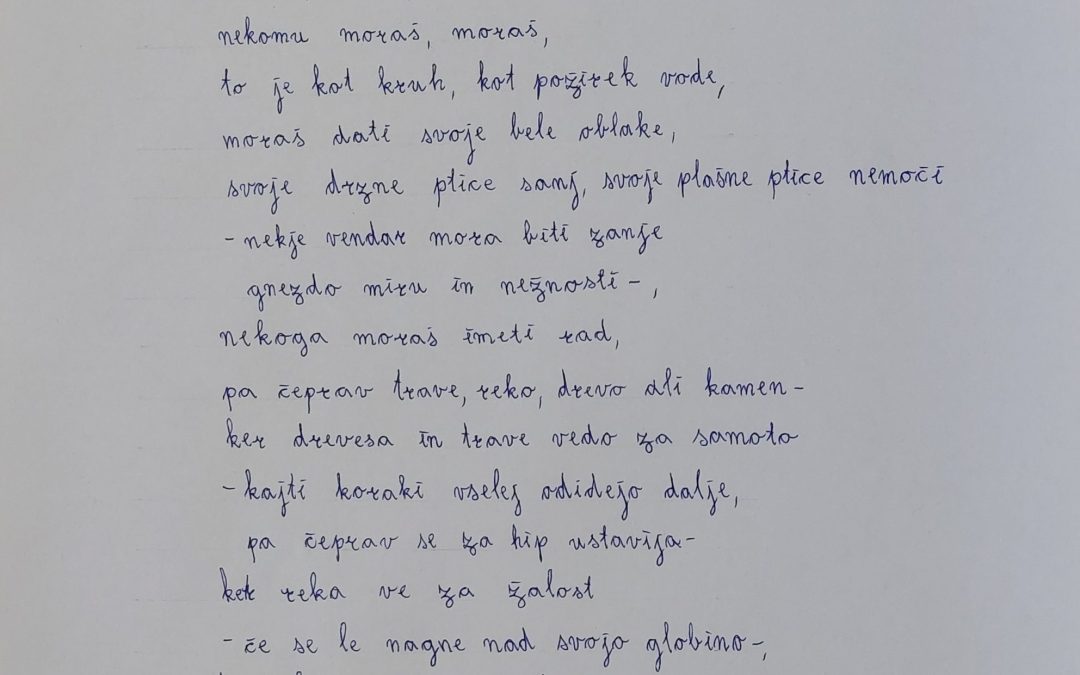 nekomu moraš, moraš,
to je kot kruh, kot požirek vode,
moraš dati svoje bele oblake,
svoje drzne ptice sanj, svoje plašne ptice nemoči
- nekje vendar mora biti zanje
gnezdo miru in nežnosti -,
nekoga moraš imeti rad,
pa čeprav trave, reko, drevo ali kamen -
ker drevesa in trave vedo za samoto
- kajti koraki vselej odidejo dalje,
pa čeprav se za hip ustavijo -
ker reka ve za žalost
- če se le nagne nad svojo globino -,